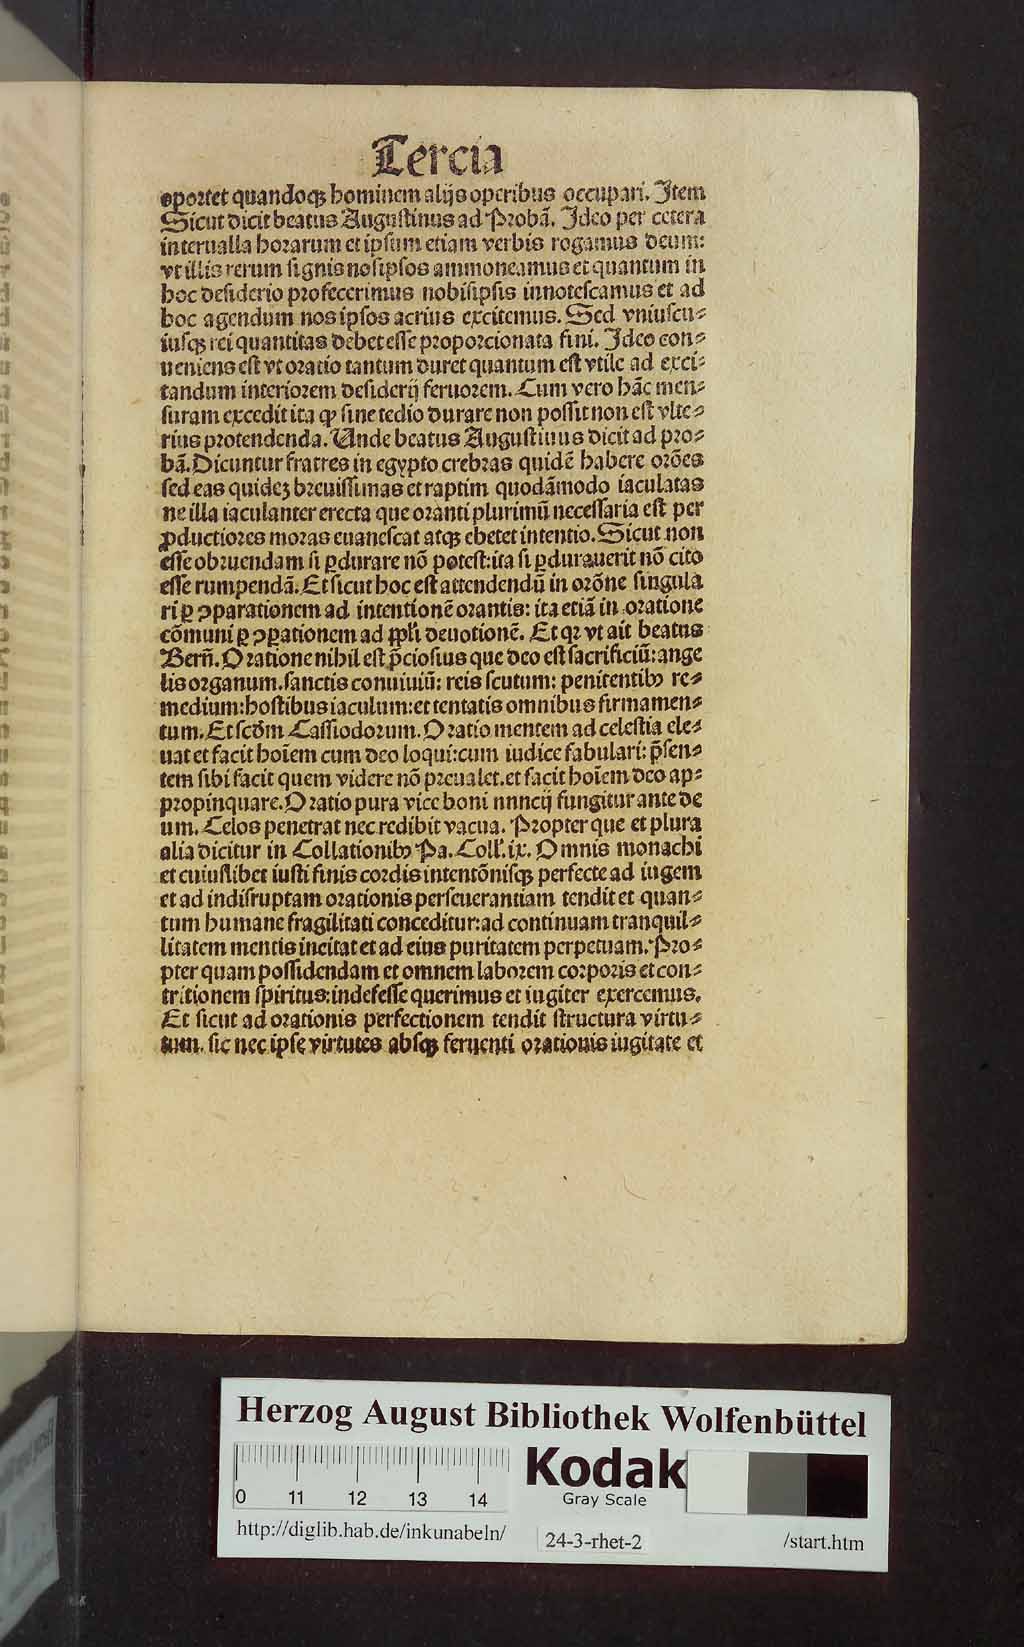 Tercia
oportet quandoqꝫ hominem alijs operibus occupari. Item
Sicut dicit beatus Augustinus ad Probā. Ideo per cetera
interualla horarum et ipsum etiam verbis rogamus deum:
vt illis rerum signis nosipsos ammoneamus et quantum in
hoc desiderio profecerimus nobisipsis innotescamus et ad
hoc agendum nos ipsos acrius excitemus. Sed vniuscu⸗
iusqꝫ rei quantitas debet esse proporcionata fini. Ideo con⸗
ueniens est vt oratio tantum duret quantum est vtile ad exci⸗
tandum interiorem desiderij feruorem. Cum vero hāc men⸗
suram excedit ita ꝙ sine tedio durare non possit non est vlte⸗
rius protendenda. Unde beatus Augustinus dicit ad pro⸗
bā. Dicuntur fratres in egypto crebras quidē habere orōes
sed eas quideꝫ breuissimas et raptim quodāmodo iaculatas
ne illa iaculanter erecta que oranti plurimū necessaria est per
ꝓductiores moras euanescat atqꝫ ebetet intentio. Sicut non
esse obruendam si ꝑdurare nō potest: ita si ꝑdurauerit nō cito
esse rumpendā. Et sicut hoc est attendendū in orōne singula
ri ꝑ ꝯparationem ad intentionē orantis: ita etiā in oratione
cōmuni ꝑ ꝯꝑationem ad ppli deuotionē. Et qꝛ vt ait beatus
Berñ. Oratione nihil est p̄ciosius que deo est sacrificiū: ange
lis organum. sanctis conuiuiū: reis scutum: penitentibꝰ re⸗
medium: hostibus iaculum: et tentatis omnibus firmamen⸗
tum. Et scdm̄ Cassiodorum. Oratio mentem ad celestia ele⸗
uat et facit hoīem cum deo loqui: cum iudice fabulari: p̄sen⸗
tem sibi facit quem videre nō preualet. et facit hoīem deo ap⸗
propinquare. Oratio pura vice boni nnncij fungitur ante de
um. Celos penetrat nec redibit vacua. Propter que et plura
alia dicitur in Collationibꝰ Pa. Coll'. ix. Omnis monachi
et cuiuslibet iusti finis cordis intentōnisqꝫ perfecte ad iugem
et ad indisruptam orationis perseuerantiam tendit et quan⸗
tum humane fragilitati conceditur: ad continuam tranquil⸗
litatem mentis incitat et ad eius puritatem perpetuam. Pro⸗
pter quam possidendam et omnem laborem corporis et con⸗
tritionem spiritus: indefesse querimus et iugiter exercemus.
Et sicut ad orationis perfectionem tendit structura virtu⸗
tum. sic nec ipse virtutes absqꝫ feruenti orationis iugitate et
Herzog August Bibliothek Wolfenbüttel
0 11 12 13 14
Kodak
Gray Scale
http://diglib.hab.de/inkunabeln/ 24-3-rhet-2 /start.htm